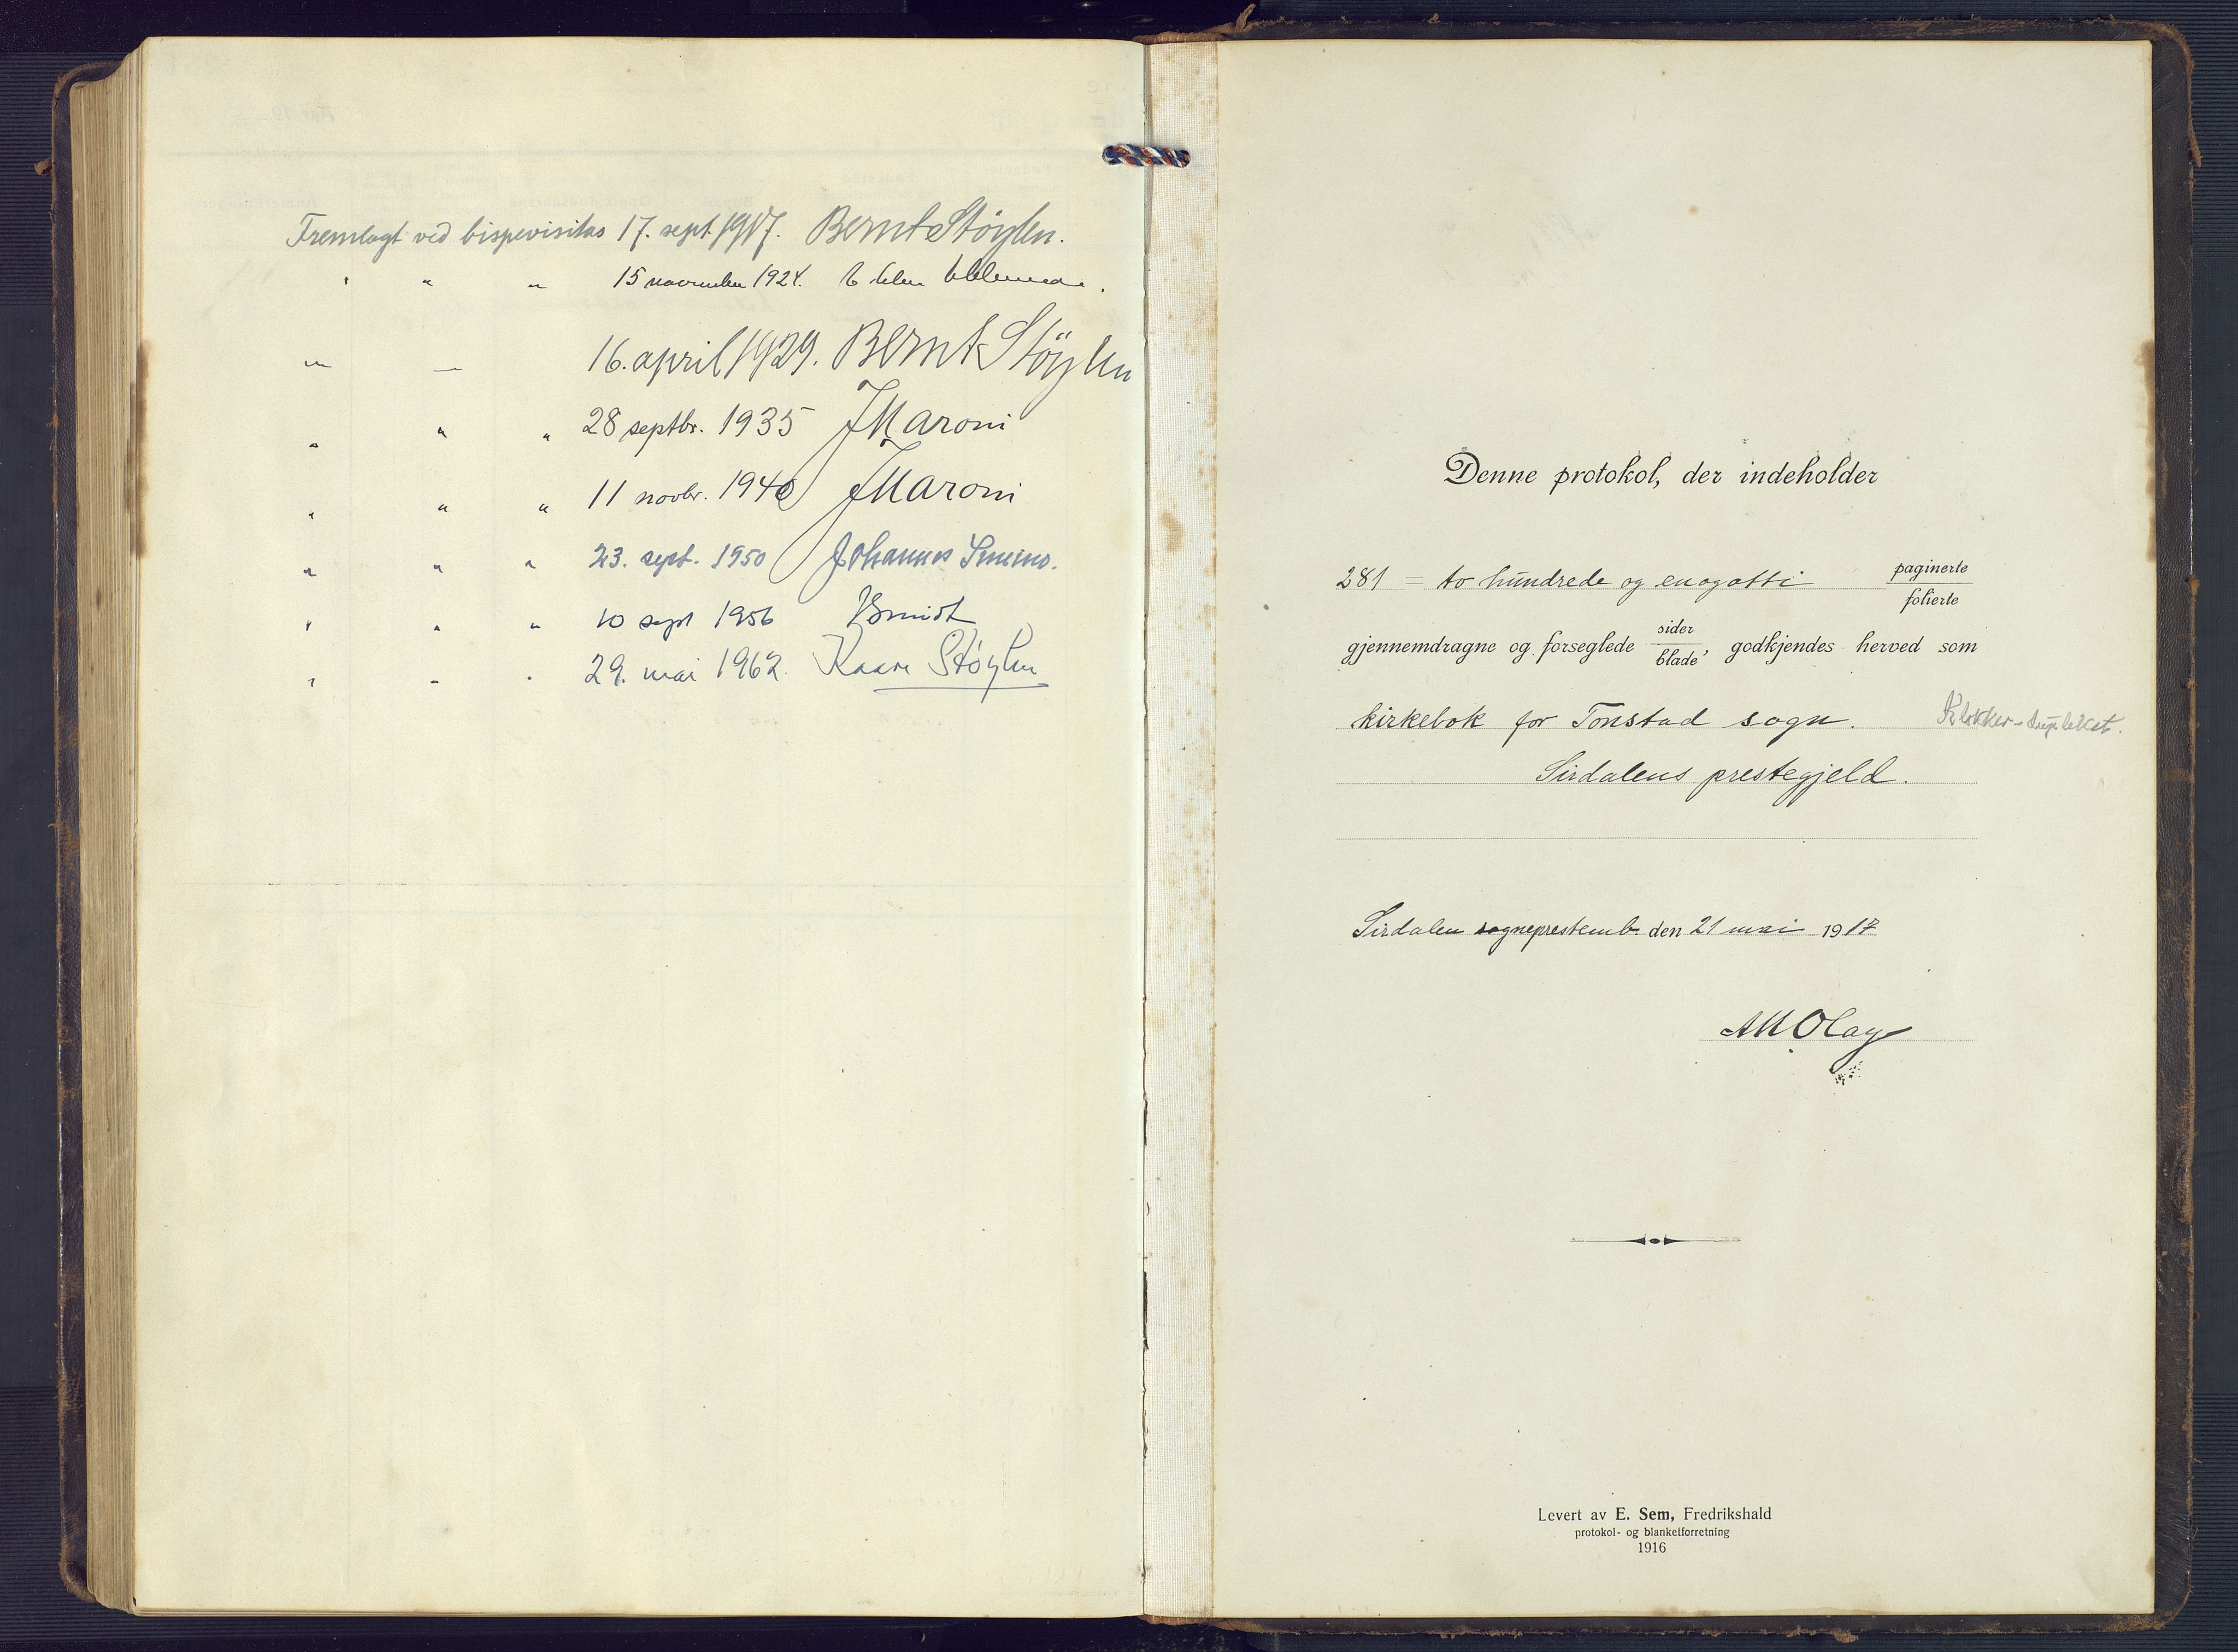 Fremlagt ved bispevisitas 17. sept. 1917. Bernt Støylen.
" " " 15 november 1924.
" — 16. april 1929. Bernt Støylen
" " " 28 septbr. 1935 J Maroni
" " " 11 novbr. 1940 J Maroni
" " " 23. sept. 1950 Johannes Smemo.
" " " 10 sept 1956 J Smidt
" " " 29. mai 1962. Kaare Støylen
Denne protokol, der indeholder
281 = to hundrede og enogotti paginerte
folierte
gjennemdragne og forseglede sider
blade, godkjendes herved som
kirkebok for Tonstad sogn. Klokker-duplikat.
Sirdalens prestegjeld.
Sirdalen sogneprestemb. den 21 mai 1917
Levert av E. Sem, Fredrikshald
protokol- og blanketforretning
1916